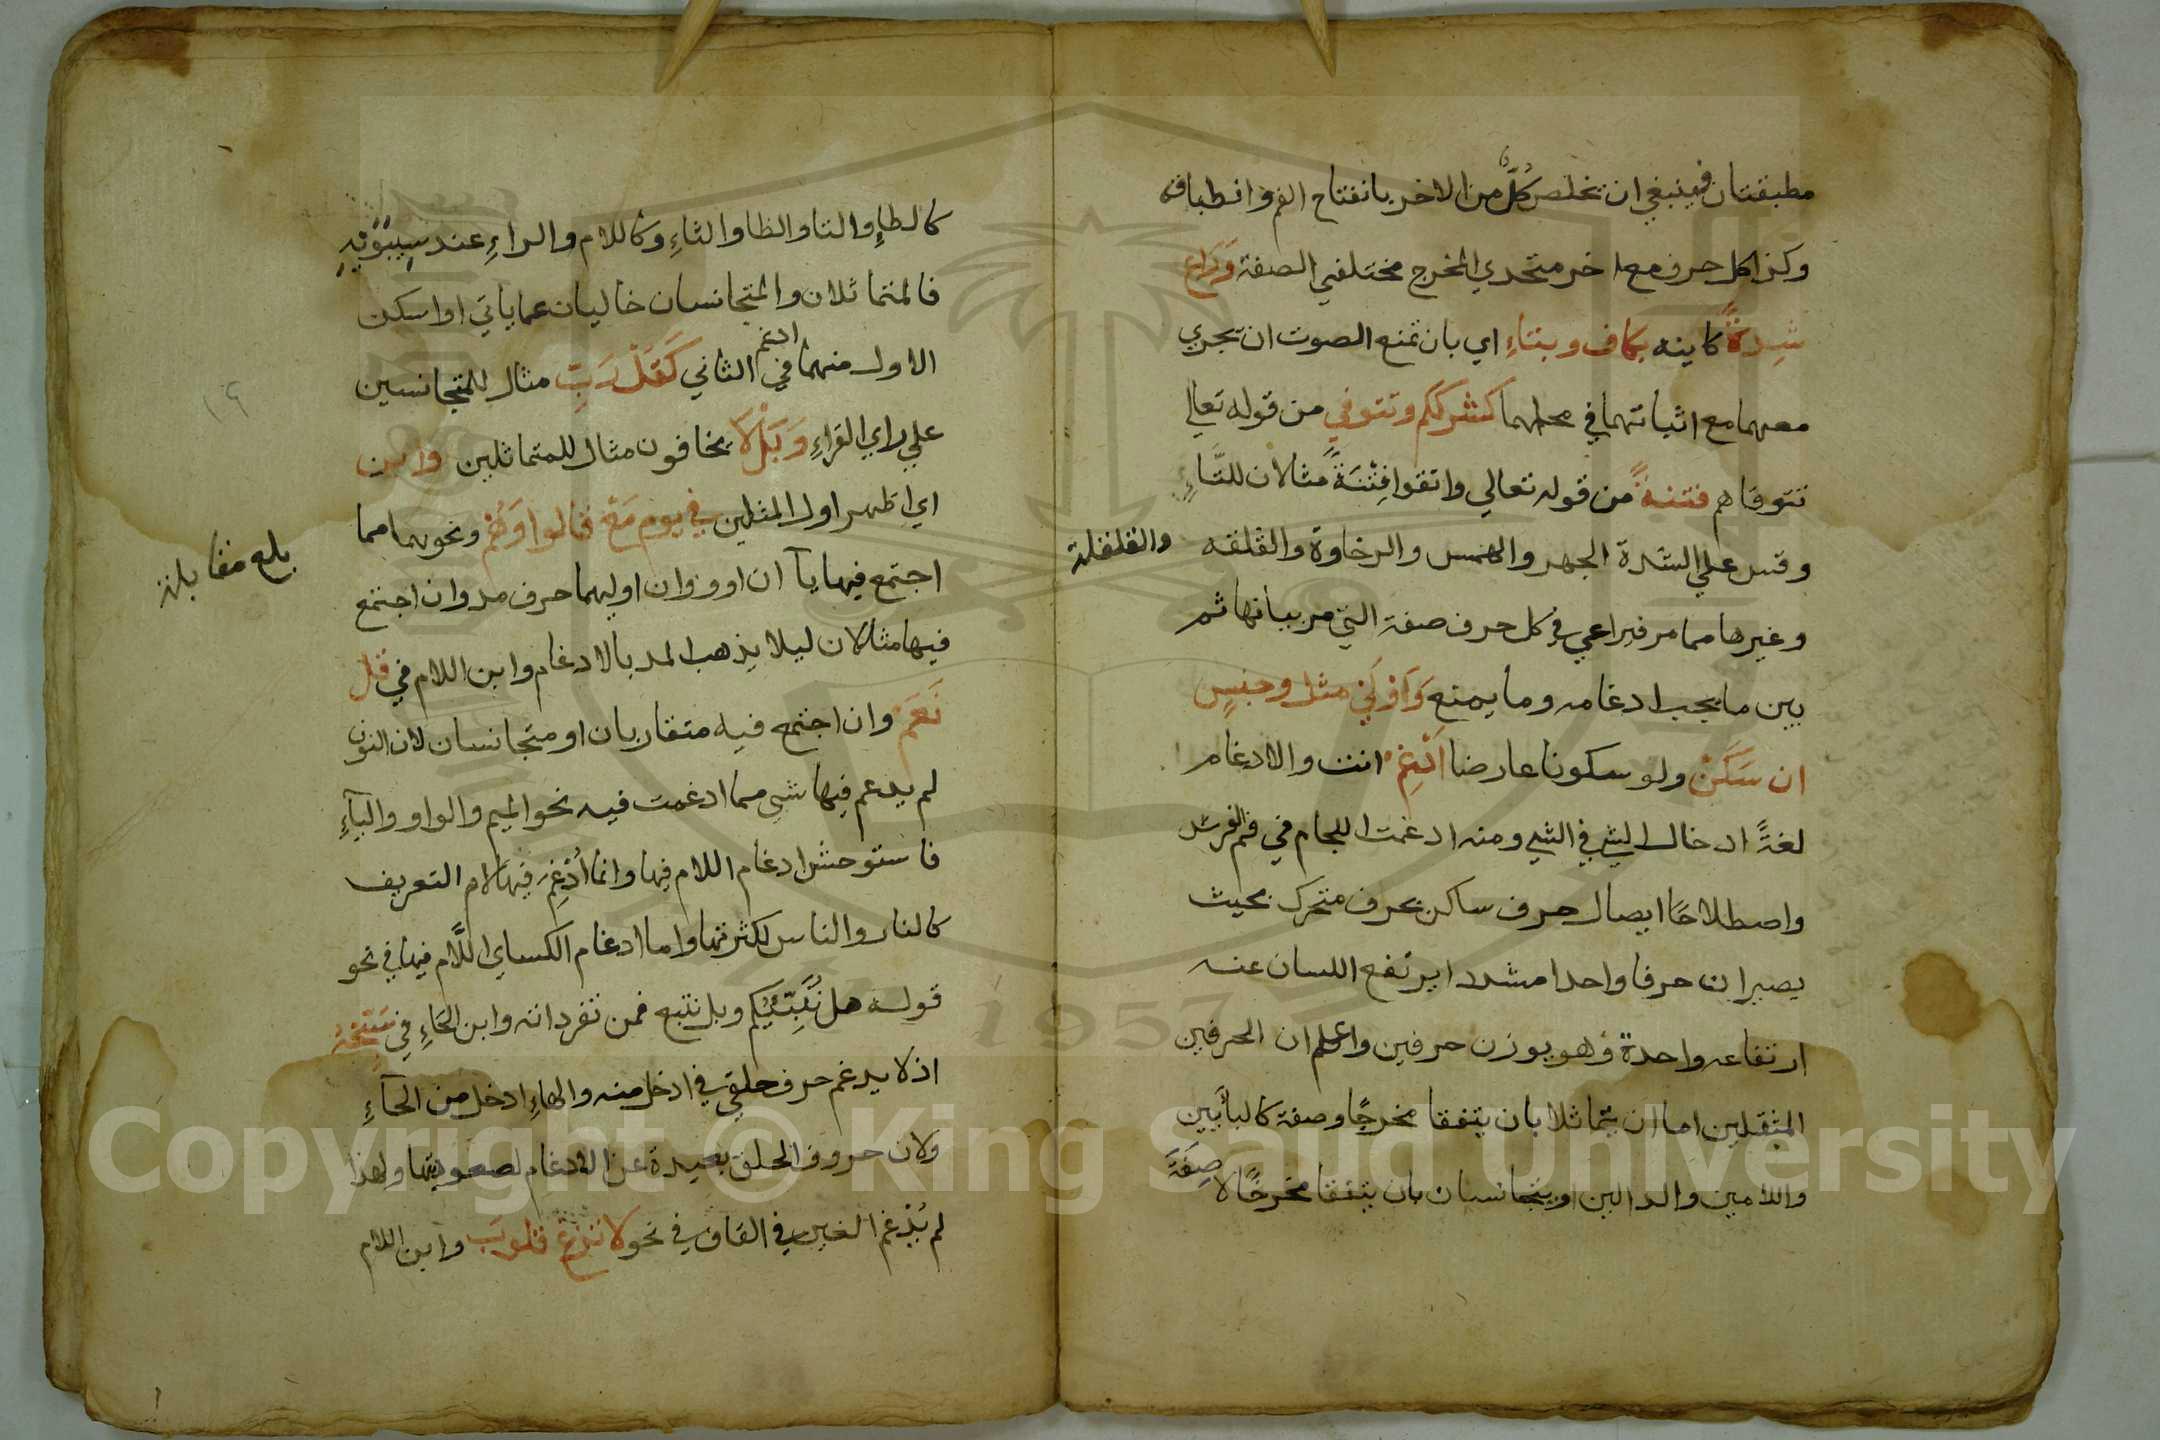 مطبقتان فينبغي ان تخلص كلٌّ من الاخر بانفتاح الفم وانطباقه
وكذا كل حرف مع اخر متحدي المخرج مختلفي الصفة وَرَاعِ
شِدةً كاينه بكاف وبتاءِ اي بان تمنع الصوت ان يجري
معهما مع اثباتهما في محلهما كشرككم وتتوفي من قوله تعالي
تتوفاهم فتنةً من قوله تعالي واتقوا فِتْنَةً مثالان للتَّاءِ
وقس علي الشدة الجهر والهمس والرخاوة والقلقه
والقلقلة
وغيرها مما مر فيراعي في كل حرف صفته التي مر بيانها ثم
بين ما يجب ادغامه وما يمتنع وَاَوَّلَيْ مثل وجنسٍ
ان سَكَنْ ولو سكونا عارضا اَدْغِمْ انت والادغام
لغةً ادخال الشي في الشي ومنه ادغمت اللجام في فم الفرس
واصطلاحًا ايصال حرف ساكن بحرف متحرك بحيث
يصيران حرفا واحدا مشددا يرتفع اللسان عنه
ارتفاعه واحدة وهو بوزن حرفين واعلم ان الحرفين
المثقلين اما ان يتماثلا بان يتفقا مخرجًا وصفة كالبائين
واللامين والدالين او يتجانسان بان يتفقا مخرجًا لا صِفَةً
كالطاءِ والتا والظا والثاءِ وكاللام والراءِ عند سِيبَوَيْهِ
فالمتماثلان والمتجانسان خاليان عما ياتي اوا سكن
الاول منهما ادغم في الثاني كَقُلْ رَبِّ مثال للمتجانسين
علي راي القراءِ وَبَلْ لَا يخافون مثال للمتماثلين وابن
اي اظهر اول المثلين في يوم مَعْ قالوا وَهُمْ ونحوهما مما
اجتمع فيها يآ ان او ووان اوليهما حرف مد وان اجتمع
بلغ مقابلة
فيها مثلان ليلا يذهب المد بالادغام وابن اللام في قل
نَعَمْ وان اجتمع فيه متقاربان او متجانسان لان النون
لم يدغم فيها شي مما ادغمت فيه نحو الميم والواو والياءِ
فاستوحش ادغام اللام فيها وانما أُدْغِمَ فيها لام التعريف
كالنار والناس لكثرتها واما ادغام الكساي اللَّام فيها في نحو
قوله هل نُنَبِّئُكم وبل نتبع فمن تفرداته وابن الحَاءِ في سَبِّحْهُ
اذ لا يدغم حرف حلقي في ادخل منه والهاءِ ادخل من الحآءِ
ولان حروف الحلق بعيدة عن الادغام لصعوبتها ولهذا
لم يُدْغَم الغين في القاف في نحو لا تزغ قلوب وابن اللام
١٩
1957
Copyright © King Saud University